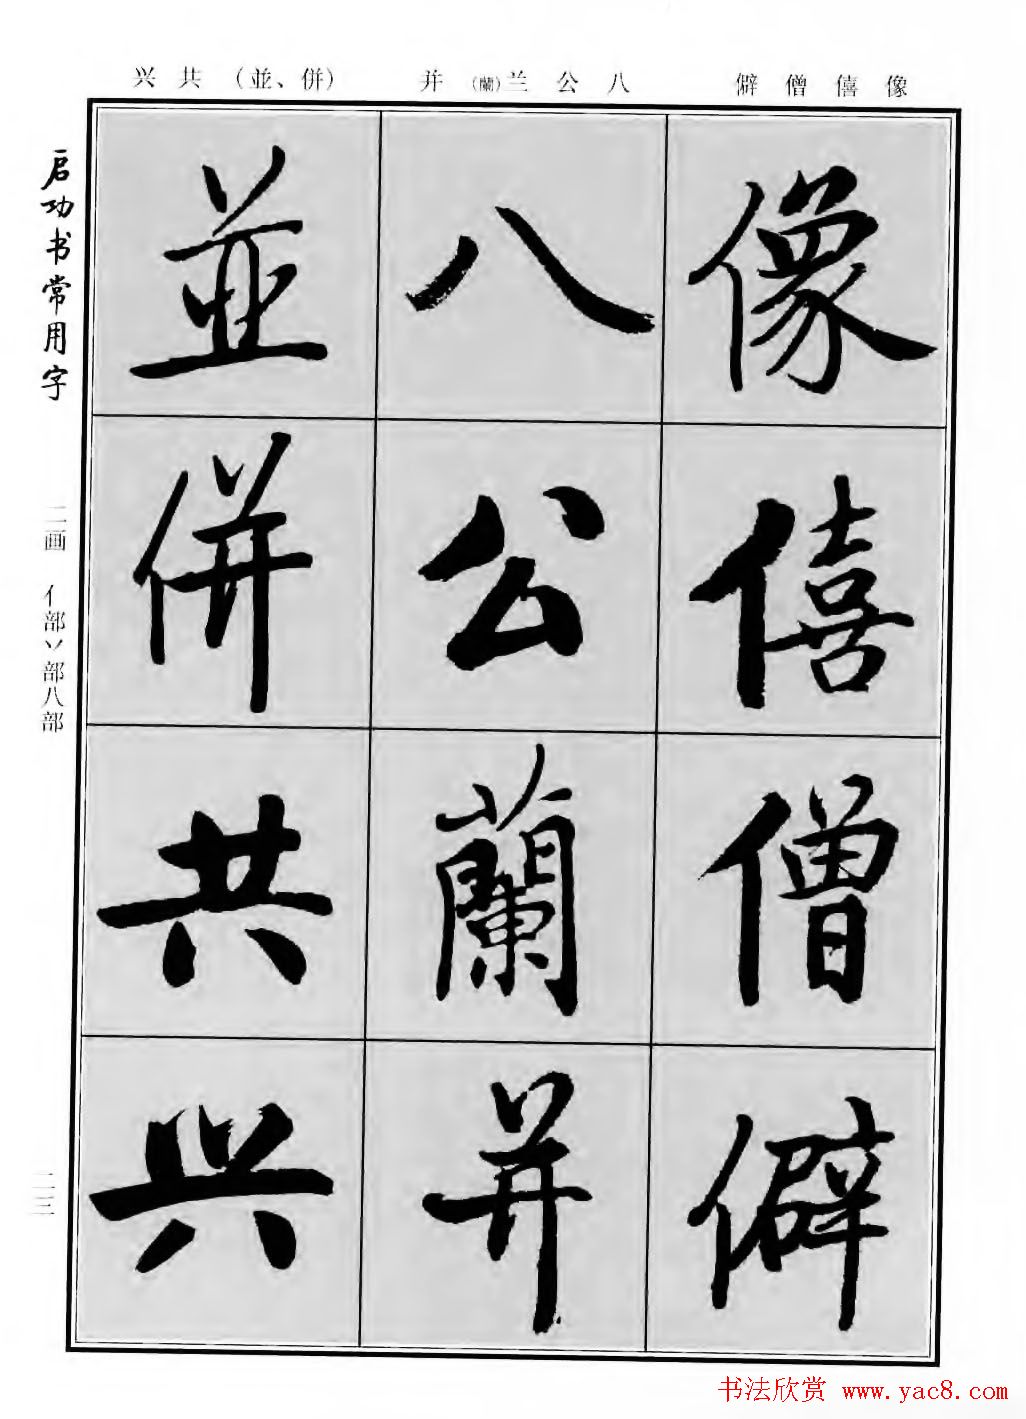 像僖僧僻
八公兰(蘭)
并(並、併)共兴
像
僖
僧
僻
八
公
蘭
并
並
併
共
兴
启功书常用字
二画 亻部丷部八部
二三
书法欣赏 www.yac8.com